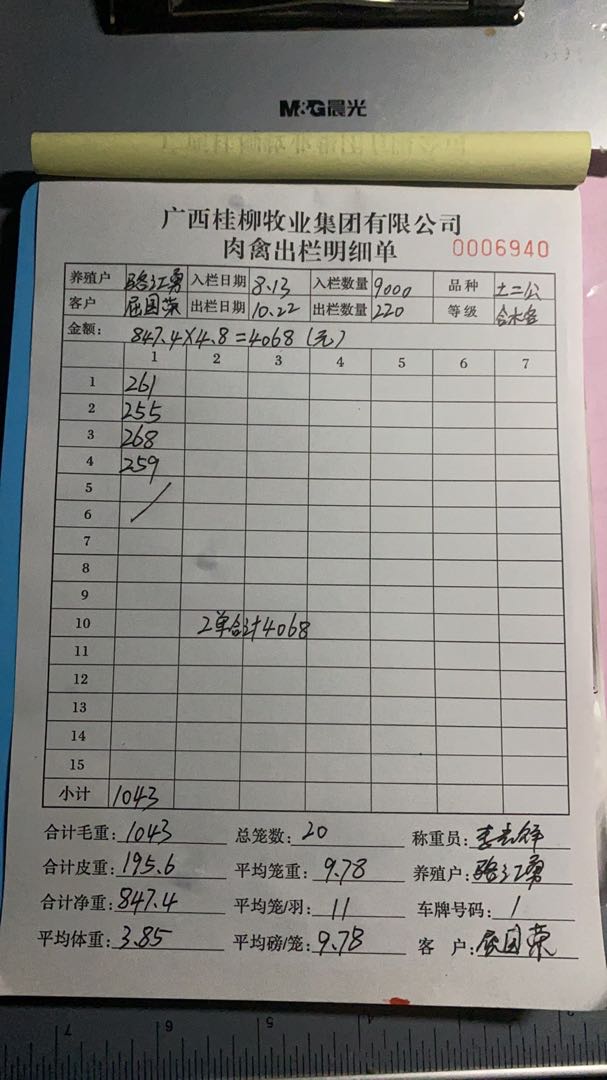 M&G晨光
广西桂柳牧业集团有限公司
肉禽出栏明细单 0006940
养殖户 骆江勇 入栏日期 8.13 入栏数量 9000 品种 土二公
客户 屈国荣 出栏日期 10.22 出栏数量 220 等级
金额: 847.4×4.8=4068(元)
1 2 3 4 5 6 7
1 261
2 255
3 268
4 259
5
6
7
8
9
10 2单合计4068
11
12
13
14
15
小计 1043
合计毛重: 1043 总笼数: 20 称重员:
合计皮重: 195.6 平均笼重: 9.78 养殖户: 骆江勇
合计净重: 847.4 平均笼/羽: 11 车牌号码: /
平均体重: 3.85 平均磅/笼: 9.78 客 户: 屈国荣
7 6 5 4 3 2 1